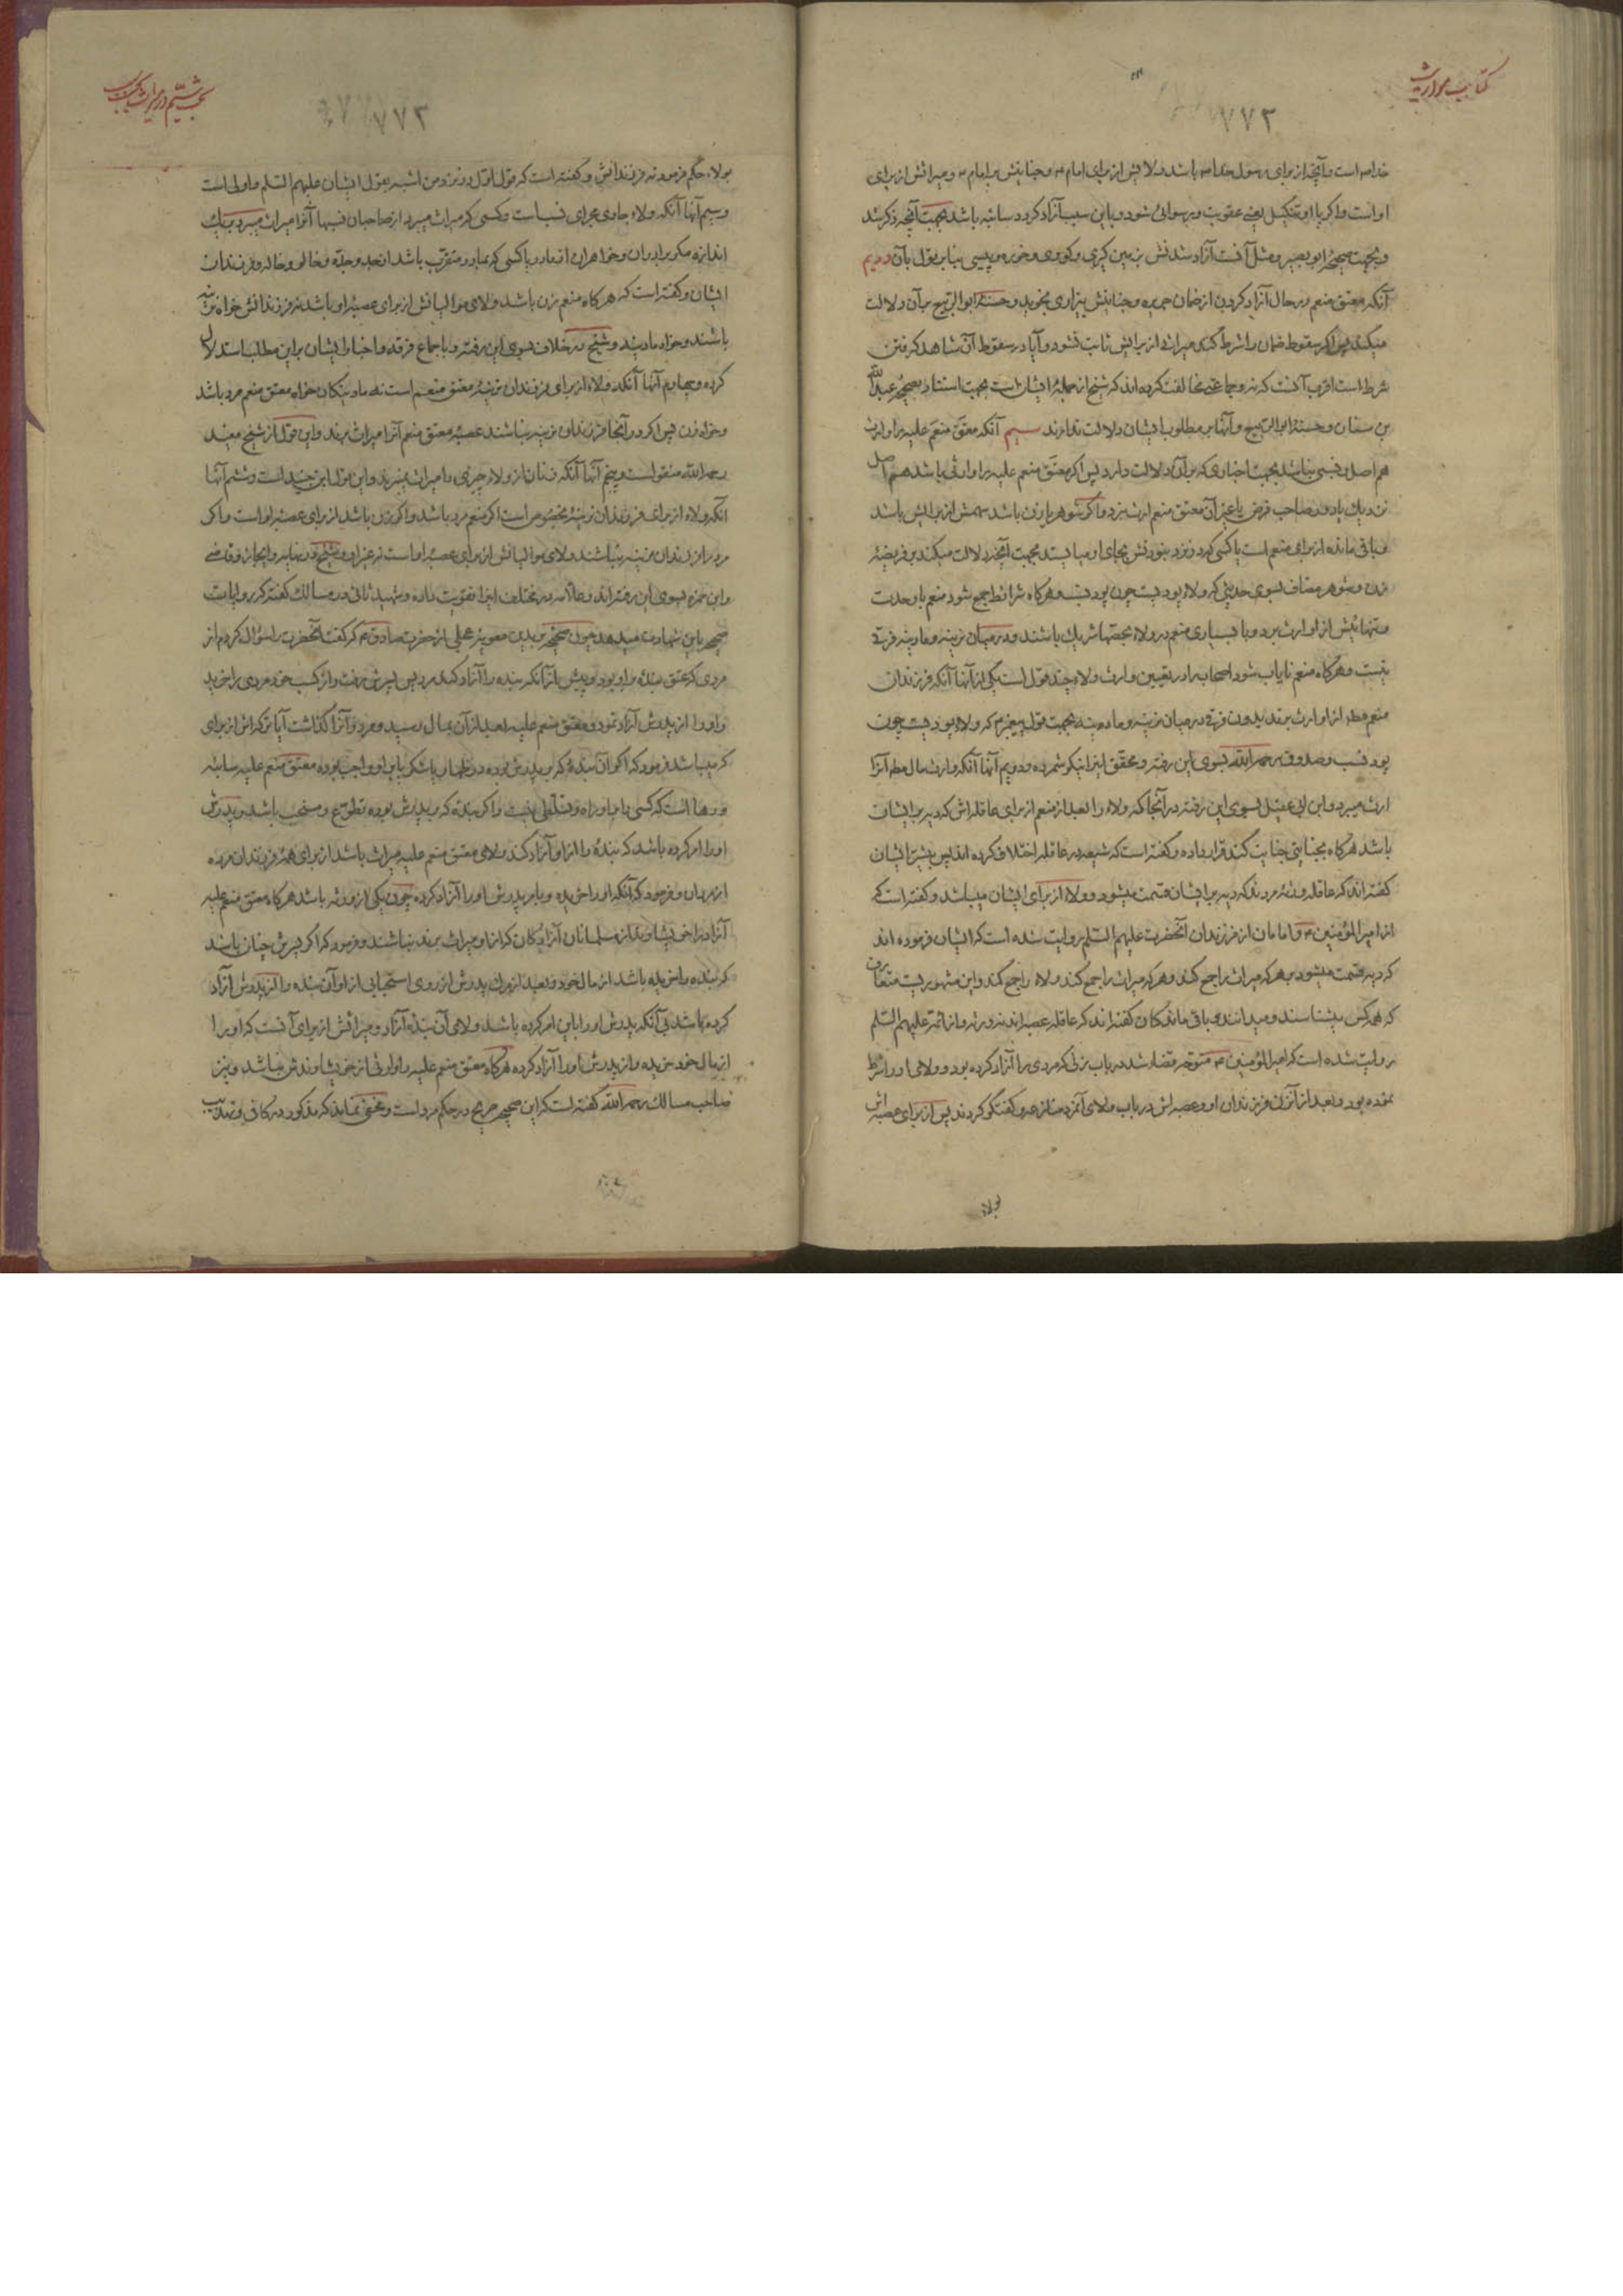 کتاب مواریث
۷۷۲
خداص است و آنچه از برای رسول خداص باشد ولائش از برای امام ع و جنایتش بر امام ع و میراثش از برای
او است و اگر با او تنکیل یعنی عقوبت و رسوائی شود و باین سبب آزاد کردد سائبه باشد بجهت آنچه ذکر شد
و بجهت صحیحهٔ ابو بصیر و مثل آنست آزاد شدنش بزمین کیری و کوری و خوره و پیسی بنا بر قول بآن دویم
آنکه معتق منعم در حال آزاد کردن از ضمان جریره و جنایتش بیزاری نجوید و حسنهٔ ابو الربیع بر آن دلالت
میکند پس اگر سقوط ضمان را شرط کند میراث از برایش ثابت نشود و آیا در سقوط آن شاهد کرفتن
شرط است اقرب آنست که نه و جماعتی مخالفت کرده اند که شیخ از جملهٔ ایشان است بجهت استناد بصحیحهٔ عبد الله
بن سنان و حسنهٔ ابو الربیع و آنها بر مطلوب ایشان دلالت ندارند سیم آنکه معتَق منعَم علیه را وارث
هم اصل و نسبی نباشد بجهت اخباری که بر آن دلالت دارد پس اگر معتَق منعم علیه را وارثی باشد هم اصل
نزدیك یا دور صاحب فرض یا غیر آن معتق منعم ارث نبرد و اگر شوهر یا زن باشد سهمش از برایش باشد
و باقی مانده از برای منعم است یا کسی که در نزد نبودنش بجای او میایستد بجهت آنچه دلالت میکند بر فریضهٔ
زن و شوهر مضاف بسوی حدیثی که ولاء پودیست چون پود نسب و هرکاه شرائط جمع شود منعم با وحدت
و تنهائیش از او ارث برد و با بسیاری منعم در ولاء بحصتها شریك باشند و در میان نرینه و مادینه فرقی
نیست و هرکاه منعم نایاب شود اصحاب را در تعیین وارث ولاء چند قول است یکی از آنها آنکه فرزندان
منعم مطلقا از او ارث برند بدون فرق در میان نرینه و مادینه بجهت قول پیغمبر ص که ولاء پودیست چون
پود نسب و صدوق رحمه الله بسوی این رفته و محقق اینرا نیکو شمرده و دویم آنها آنکه وارث مال مطلقا آنرا
ارث میبرد و ابن ابی عقیل بسوی این رفته در آنجا که ولاء را بعد از منعم از برای عاقله اش که دیه بر ایشان
باشد هرکاه بجنایتی جنایت کند قرار داده و کفته است که شیعه در عاقله اختلاف کرده اند پس بیشتر ایشان
کفته اند که عاقله ورثهٔ مردند که دیه بر ایشان قسمت میشود و ولاء از برای ایشان میباشد و کفته است که
از امیر المؤمنین ع و امامان از فرزندان آنحضرت علیهم السلم روایت شده است که ایشان فرموده اند
که دیه قسمت میشود بر هر که میراث را جمع کند و هر که میراث را جمع کند ولاء را جمع کند و این مشهوریست متعارف
که هر کس میشناسند و میدانند و باقی ماندکان کفته اند که عاقله عصبه اند نه ورثه و از ائمه علیهم السلم
روایت شده است که امیر المؤمنین ع متوجه قضاء شد در باب زنی که مردی را آزاد کرده بود و ولای او را شرط
نموده بود و بعد از آن زن فرزندان او و عصبه اش در باب ولای آنمرد منازعه و کفتکو کردند پس از برای عصبه اش
بولاء
۷۷۳
بولاء حکم فرمود نه فرزندانش و کفته است که قول اول در نزد من اشبه بقول ایشان علیهم السلم و اولی است
و سیم آنها آنکه ولاء جاری مجرای نسب است و کسی که میراث میبرد از صاحبان نسبها آنرا میراث میبرد بیك
اندازه مکر برادران و خواهران از مادر یا کسی که بمادر متقرب باشد از جد و جده و خالو و خاله و فرزندان
ایشان و کفته است که هر کاه منعم زن باشد ولای موالیانش از برای عصبهٔ او باشد نه فرزندانش خواه نرینه
باشند و خواه مادینه و شیخ در خلاف بسوی این رفته و باجماع فرقه و اخبار ایشان بر این مطلب استدلال
کرده و چهارم آنها آنکه ولاء از برای فرزندان نرینهٔ معتق منعم است نه مادینکان خواه معتق منعم مرد باشد
و خواه زن پس اگر در آنجا فرزندان نرینه نباشند عصبهٔ معتق منعم آنرا میراث برند و این قول از شیخ مفید
رحمه الله منقول است و پنجم آنها آنکه زنان از ولاء چیزی را میراث نمیبرند و این قول ابن جنید است و ششم آنها
آنکه ولاء از برای فرزندان نرینه مخصوص است اگر منعم مرد باشد و اگر زن باشد از برای عصبهٔ او است و اگر
مرد را فرزندان نرینه نباشند ولای موالیانش از برای عصبهٔ او است نه غیر آن و شیخ در نهایه و ایجاز و قاضی
و ابن حمزه بسوی این رفته اند و علامه در مختلف اینرا تقویت داده و شهید ثانی در مسالك کفته که روایات
صحیحه باین شهادت میدهد چون صحیحهٔ برید بن معویهٔ عجلی از حضرت صادق ع که کفت آنحضرت را سؤال کردم از
مردی که عتق بندهٔ بر او بود و پیش از آنکه بنده را آزاد کند مرد پس پسرش رفت و از کسب خود مردی را خرید
و او را از پدرش آزاد نمود و معتق منعم علیه بعد از آن بمال رسید و مرد و آنرا کذاشت آیا ترکه اش از برای
که میباشد فرمود که اگر آن بندهٔ که بر پدرش بوده در ظهار یا شکر یا بر او واجب بوده معتق منعم علیه سائبه
و رها است که کسی را بر او راه و تسلطی نیست و اگر بندهٔ که بر پدرش بوده تطوع و مستحب باشد و پدرش
او را امر کرده باشد که بندهٔ را از او آزاد کند ولای معتق منعم علیه میراث باشد از برای همهٔ فرزندان مرده
از مردان و فرمود که آنکه او را خریده و بامر پدرش او را آزاد کرده چون یکی از ورثه باشد هرکاه معتق منعم علیه
آزاد را خویشاوند از مسلمانان آزادکان که از او میراث برند نباشند و فرمود که اگر پسرش چنان باشد
که بنده را خریده باشد از مال خود و بعد از مرك پدرش از روی استحبابی از او آن بنده را از پدرش آزاد
کرده باشد بی آنکه پدرش او را باین امر کرده باشد ولای آن بندهٔ آزاد و میراثش از برای آنست که او را
از مال خود خریده و از پدرش او را آزاد کرده هرکاه معتق منعم علیه را وارثی از خویشاوندش نباشد و نیز
صاحب مسالك رحمه الله کفته است که این صحیحه صریح در حکم مرد است و مخفی نماند که مذکور در کافی و تهذیب